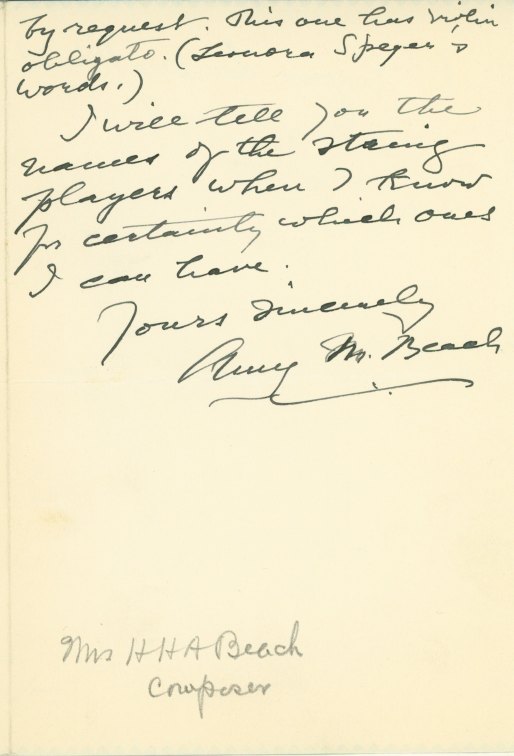 by request. This one has violin
obligato. (Leonora Speyer's
words.)
I will tell you the
names of the string
players when I know
for certainty which ones
I can have.
Yours sincerely
Amy M. Beach
Mrs H H A Beach
Composer